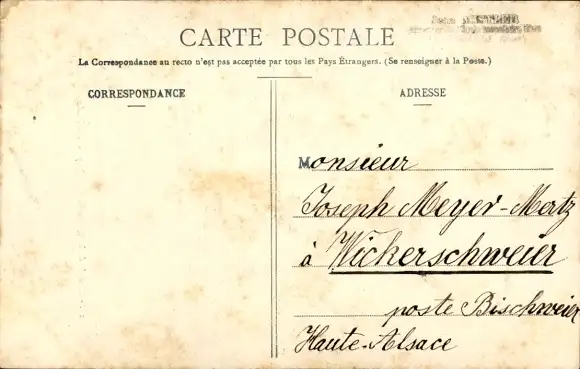 CARTE POSTALE
La Correspondance au recto n'est pas acceptée par tous les Pays Étrangers. (Se renseigner à la Poste.)
CORRESPONDANCE
ADRESSE
Monsieur
Joseph Meyer-Mertz
à Wickerschweier
poste Bischweier
Haute-Alsace